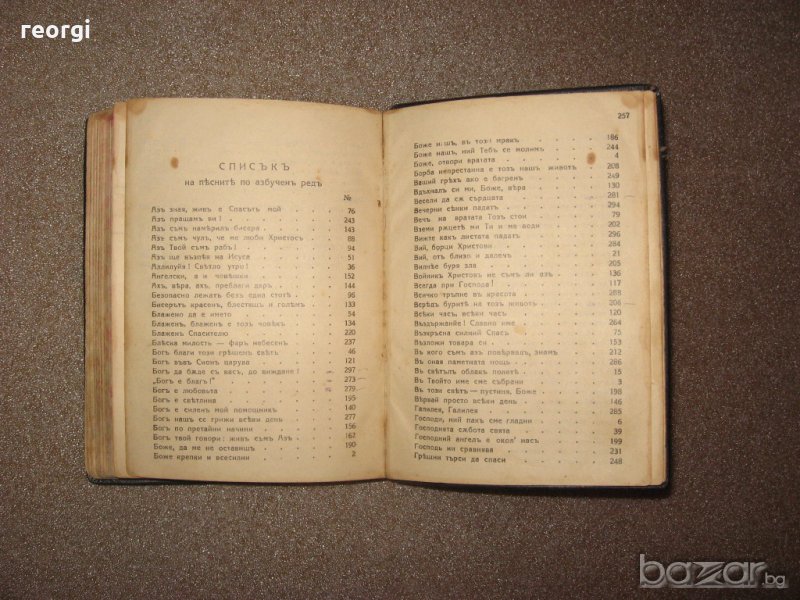 reorgi
СПИСЪКЪ
на пѣснитѣ по азбученъ редъ
№
Азъ зная, живъ е Спасътъ мой 76
Азъ пращамъ ви! 243
Азъ съмъ намѣрилъ бисера 143
Азъ съмъ чулъ, че ме люби Христосъ 88
Азъ Твой съмъ рабъ! 94
Азъ ще възпѣя на Исуса 51
Алилуйя! Свѣтло утро! 36
Ангелски, а и човѣшки 152
Ахъ, вѣра, ахъ, преблаги даръ 144
Безопасно лежатъ безъ една стотѣ 96
Бисерътъ красенъ, блестящъ и големъ 133
Блажено да е името 54
Блаженъ, блаженъ е тозъ човѣкъ 134
Блаженъ Спасителю 220
Блѣска милость — фаръ небесенъ 217
Богъ благи този грѣшенъ свѣтъ 46
Богъ въвъ Сионъ царува 121
Богъ да бѫде съ васъ, до виждане! 297
„Богъ е благъ!" 273
Богъ е любовьта 279
Богъ е свѣтлина 195
Богъ е силенъ мой помощникъ 140
Богъ нашъ се грижи всѣки день 277
Богъ по протайни начини 156
Богъ твой говори: живъ съмъ Азъ 162
Боже, да ме не оставишъ 190
Боже крепки и всесилни 2
257
Боже нашъ, въ този мракъ 186
Боже нашъ, ний Тебъ се молимъ 244
Боже, отвори вратата 4
Борба непрестанна е тозъ нашъ животъ 208
Ваший грѣхъ ако е багренъ 249
Вдъхналъ си ми, Боже, вѣра 130
Весели да сѫ сърдцата 281
Вечерни сѣнки падатъ 294
Вечь на вратата Тозъ стои 79
Вземи рѫцетѣ ми Ти и ме води 202
Вижте какъ листата падатъ 296
Вий, борци Христови 284
Вий, отъ близо и далечъ 21
Вилнѣе буря зла 205
Войникъ Христовъ не съмъ ли азъ 136
Всегда при Господа! 117
Всичко тръпне въ красота 286
Всрѣдъ буритѣ на тозъ животъ 206
Всѣки часъ, всѣки часъ 120
Въздържание! Славно име 264
Възкръсна силний Спасъ 75
Възложи товара си 153
Въ кого съмъ азъ повѣрвалъ, знамъ 212
Въ оная паметната нощь 286
Въ свѣтълъ облакъ политѣ 15
Въ Твойто име сме събрени 3
Въ този свѣтъ — пустиня, Боже 198
Вѣрвай просто всѣки день 146
Галилея, Галилея 285
Господи, ний пакъ сме гладни 6
Господнята сѫбота свята 39
Господний ангелъ е окол' насъ 199
Господь ми сравнява 231
Грѣшни търси да спаси 248
bazar.bg